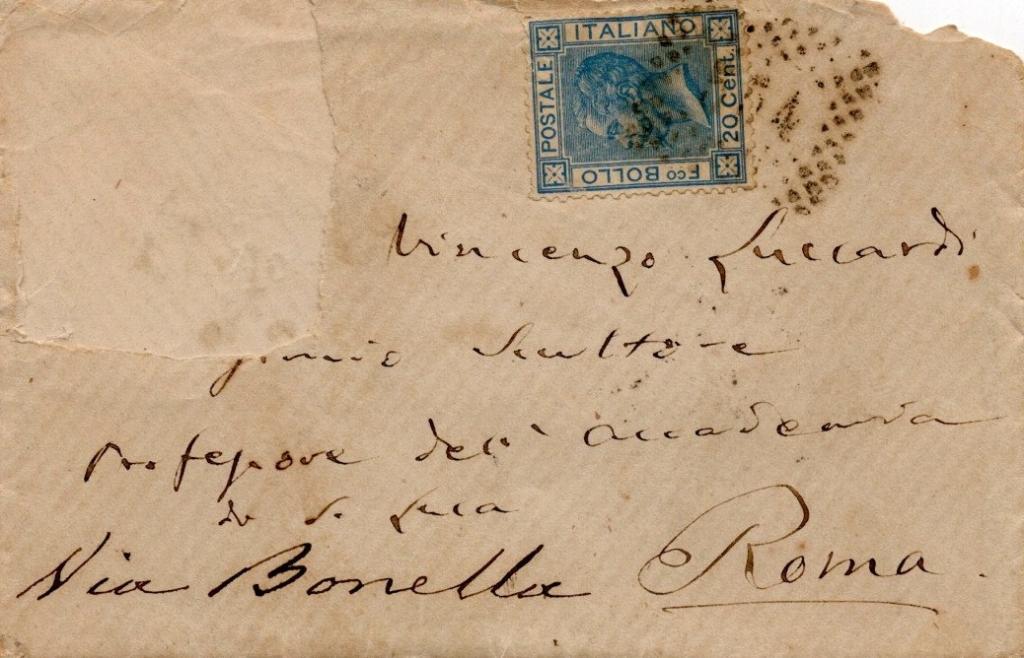 POSTALE
ITALIANO
20 Cent.
Fco BOLLO
Vincenzo Luccardi
Scultore
Professore dell' Accademia
di S. Luca
Via Bonella Roma.